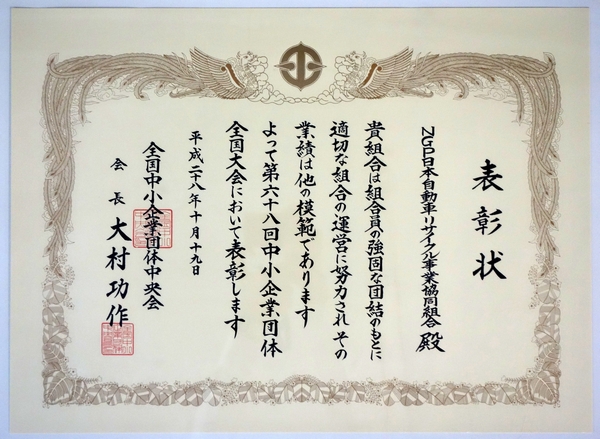 表彰状
NGP日本自動車リサイクル事業協同組合 殿
貴組合は組合員の強固な団結のもとに
適切な組合の運営に努力され その
業績は他の模範であります
よって第六十八回中小企業団体
全国大会において表彰します
平成二十八年十月十九日
全国中小企業団体中央会
会長 大村功作